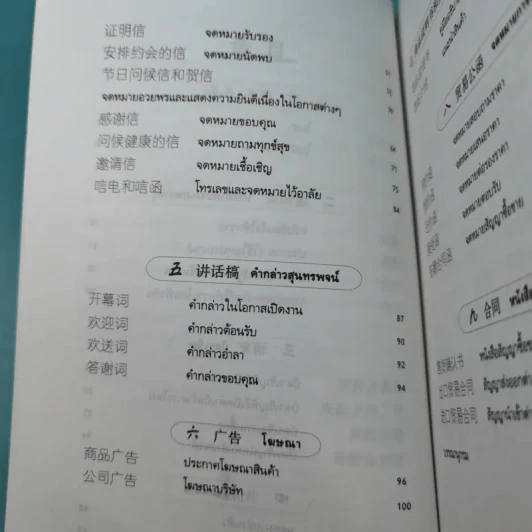 证明信 จดหมายรับรอง
安排约会的信 จดหมายนัดพบ
节日问候信和贺信
จดหมายอวยพรและแสดงความยินดีเนื่องในโอกาสต่างๆ
感谢信 จดหมายขอบคุณ
问候健康的信 จดหมายถามทุกข์สุข 71
邀请信 จดหมายเชื้อเชิญ 75
唁电和唁函 โทรเลขและจดหมายไว้อาลัย 84
五 讲话稿 คำกล่าวสุนทรพจน์
开幕词 คำกล่าวในโอกาสเปิดงาน 87
欢迎词 คำกล่าวต้อนรับ 90
欢送词 คำกล่าวอำลา 92
答谢词 คำกล่าวขอบคุณ 94
六 广告 โฆษณา
商品广告 ประกาศโฆษณาสินค้า 96
公司广告 โฆษณาบริษัท 100
八 贸易公函
จดหมายสอบถามราคา
จดหมายเสนอราคา
จดหมายต่อรองราคา
จดหมายตอบรับ
จดหมายสัญญาซื้อขาย
九 合同 หนังสือ
售货确认书 หนังสือสัญญาซื้อขาย
出口贸易合同 สัญญาส่งออก
进口贸易合同 สัญญานำเข้า
บรรณานุกรม